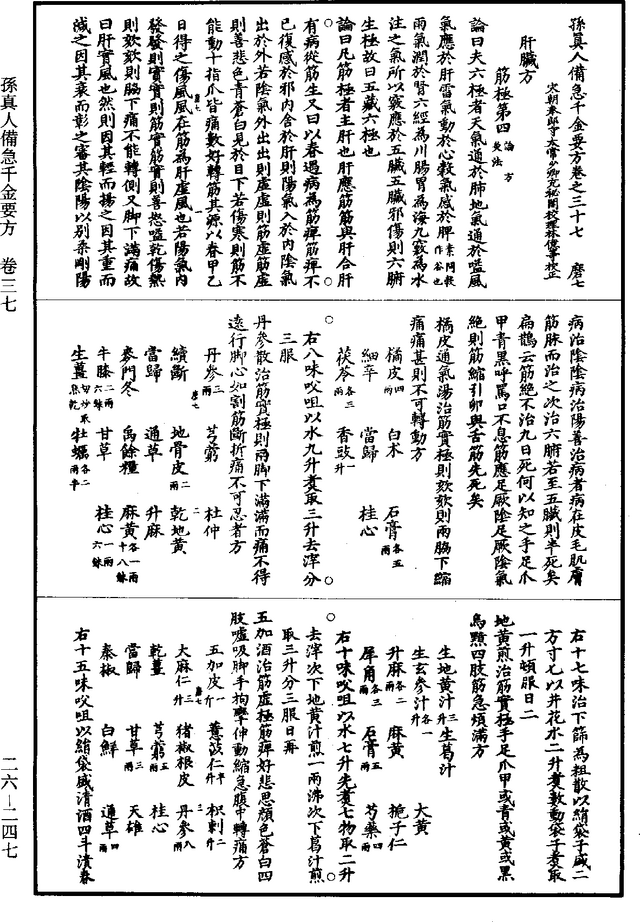 孫真人備急千金要方卷之三十七 磨七
宋朝奉郎守太常少卿充秘閣校理林億等校正
肝臟方
筋極第四 論 方 灸法
論曰夫六極者天氣通於肺地氣通於嗌風
氣應於肝雷氣動於心穀氣感於脾素問穀作谷也
雨氣潤於腎六經為川腸胃為海九竅為水
注之氣所以竅應於五臟五臟邪傷則六腑
生極故曰五臟六極也
論曰凡筋極者主肝也肝應筋筋與肝合肝
有病從筋生又曰以春遇病為筋痺筋痺不
已復感於邪內舍於肝則陽氣入於內陰氣
出於外若陰氣外出出則虛虛則筋虛筋虛
則善悲色青蒼白見於目下若傷寒則筋不
能動十指爪皆痛數好轉筋其源以春甲乙
日得之傷風風在筋為肝虛風也若陽氣內
發發則實實則筋實筋實則善怒嗌乾傷熱
則欬欬則脇下痛不能轉側又脚下滿痛故
曰肝實風也然則因其輕而揚之因其重而
減之因其衰而彰之審其陰陽以別柔剛陽
病治陰陰病治陽善治病者病在皮毛肌膚
筋脉而治之次治六腑若至五臟則半死矣
扁鵲云筋絕不治九日死何以知之手足爪
甲青黑呼罵口不息筋應足厥陰足厥陰氣
絕則筋縮引卵與舌筋先死矣
橘皮通氣湯治筋實極則欬欬則兩脇下縮
痛痛甚則不可轉動方
橘皮四兩 白朮 石膏各五兩
細辛 當歸 桂心
茯苓各三兩 香豉一升
右八味㕮咀以水九升煑取三升去滓分
三服
丹參散治筋實極則兩脚下滿滿而痛不得
遠行脚心如割筋斷折痛不可忍者方
丹參三兩 芎藭 杜仲
續斷 地骨皮二兩 乾地黃
當歸 通草 升麻
麥門冬 禹餘糧 麻黃各一兩十八銖
牛膝二兩六銖 甘草 桂心一兩六銖
生薑切炒取焦乾 牡蠣各二兩半
右十七味治下篩為粗散以絹袋子盛二
方寸匕以井花水二升煑數動袋子煑取
一升頓服日二
地黃煎治筋實極手足爪甲或青或黃或黑
烏黯四肢筋急煩滿方
生地黃汁三升 生葛汁
生玄參汁各一升 大黃
升麻各二兩 麻黃 梔子仁
犀角各三兩 石膏五兩 芍藥四兩
右十味㕮咀以水七升先煑七物取二升
去滓次下地黃汁煎一兩沸次下葛汁煎
取三升分三服日再
五加酒治筋虛極筋痺好悲思顏色蒼白四
肢噓吸脚手拘攣伸動縮急腹中轉痛方
五加皮一斤 薏苡仁半升 枳刺二升
大麻仁三升 猪椒根皮 丹參八兩
乾薑 芎藭五兩 桂心
當歸 甘草三兩 天雄
秦椒 白鮮 通草四兩
右十五味㕮咀以絹袋盛清酒四斗漬春
孫真人備急千金要方 卷三七
二六—二四七